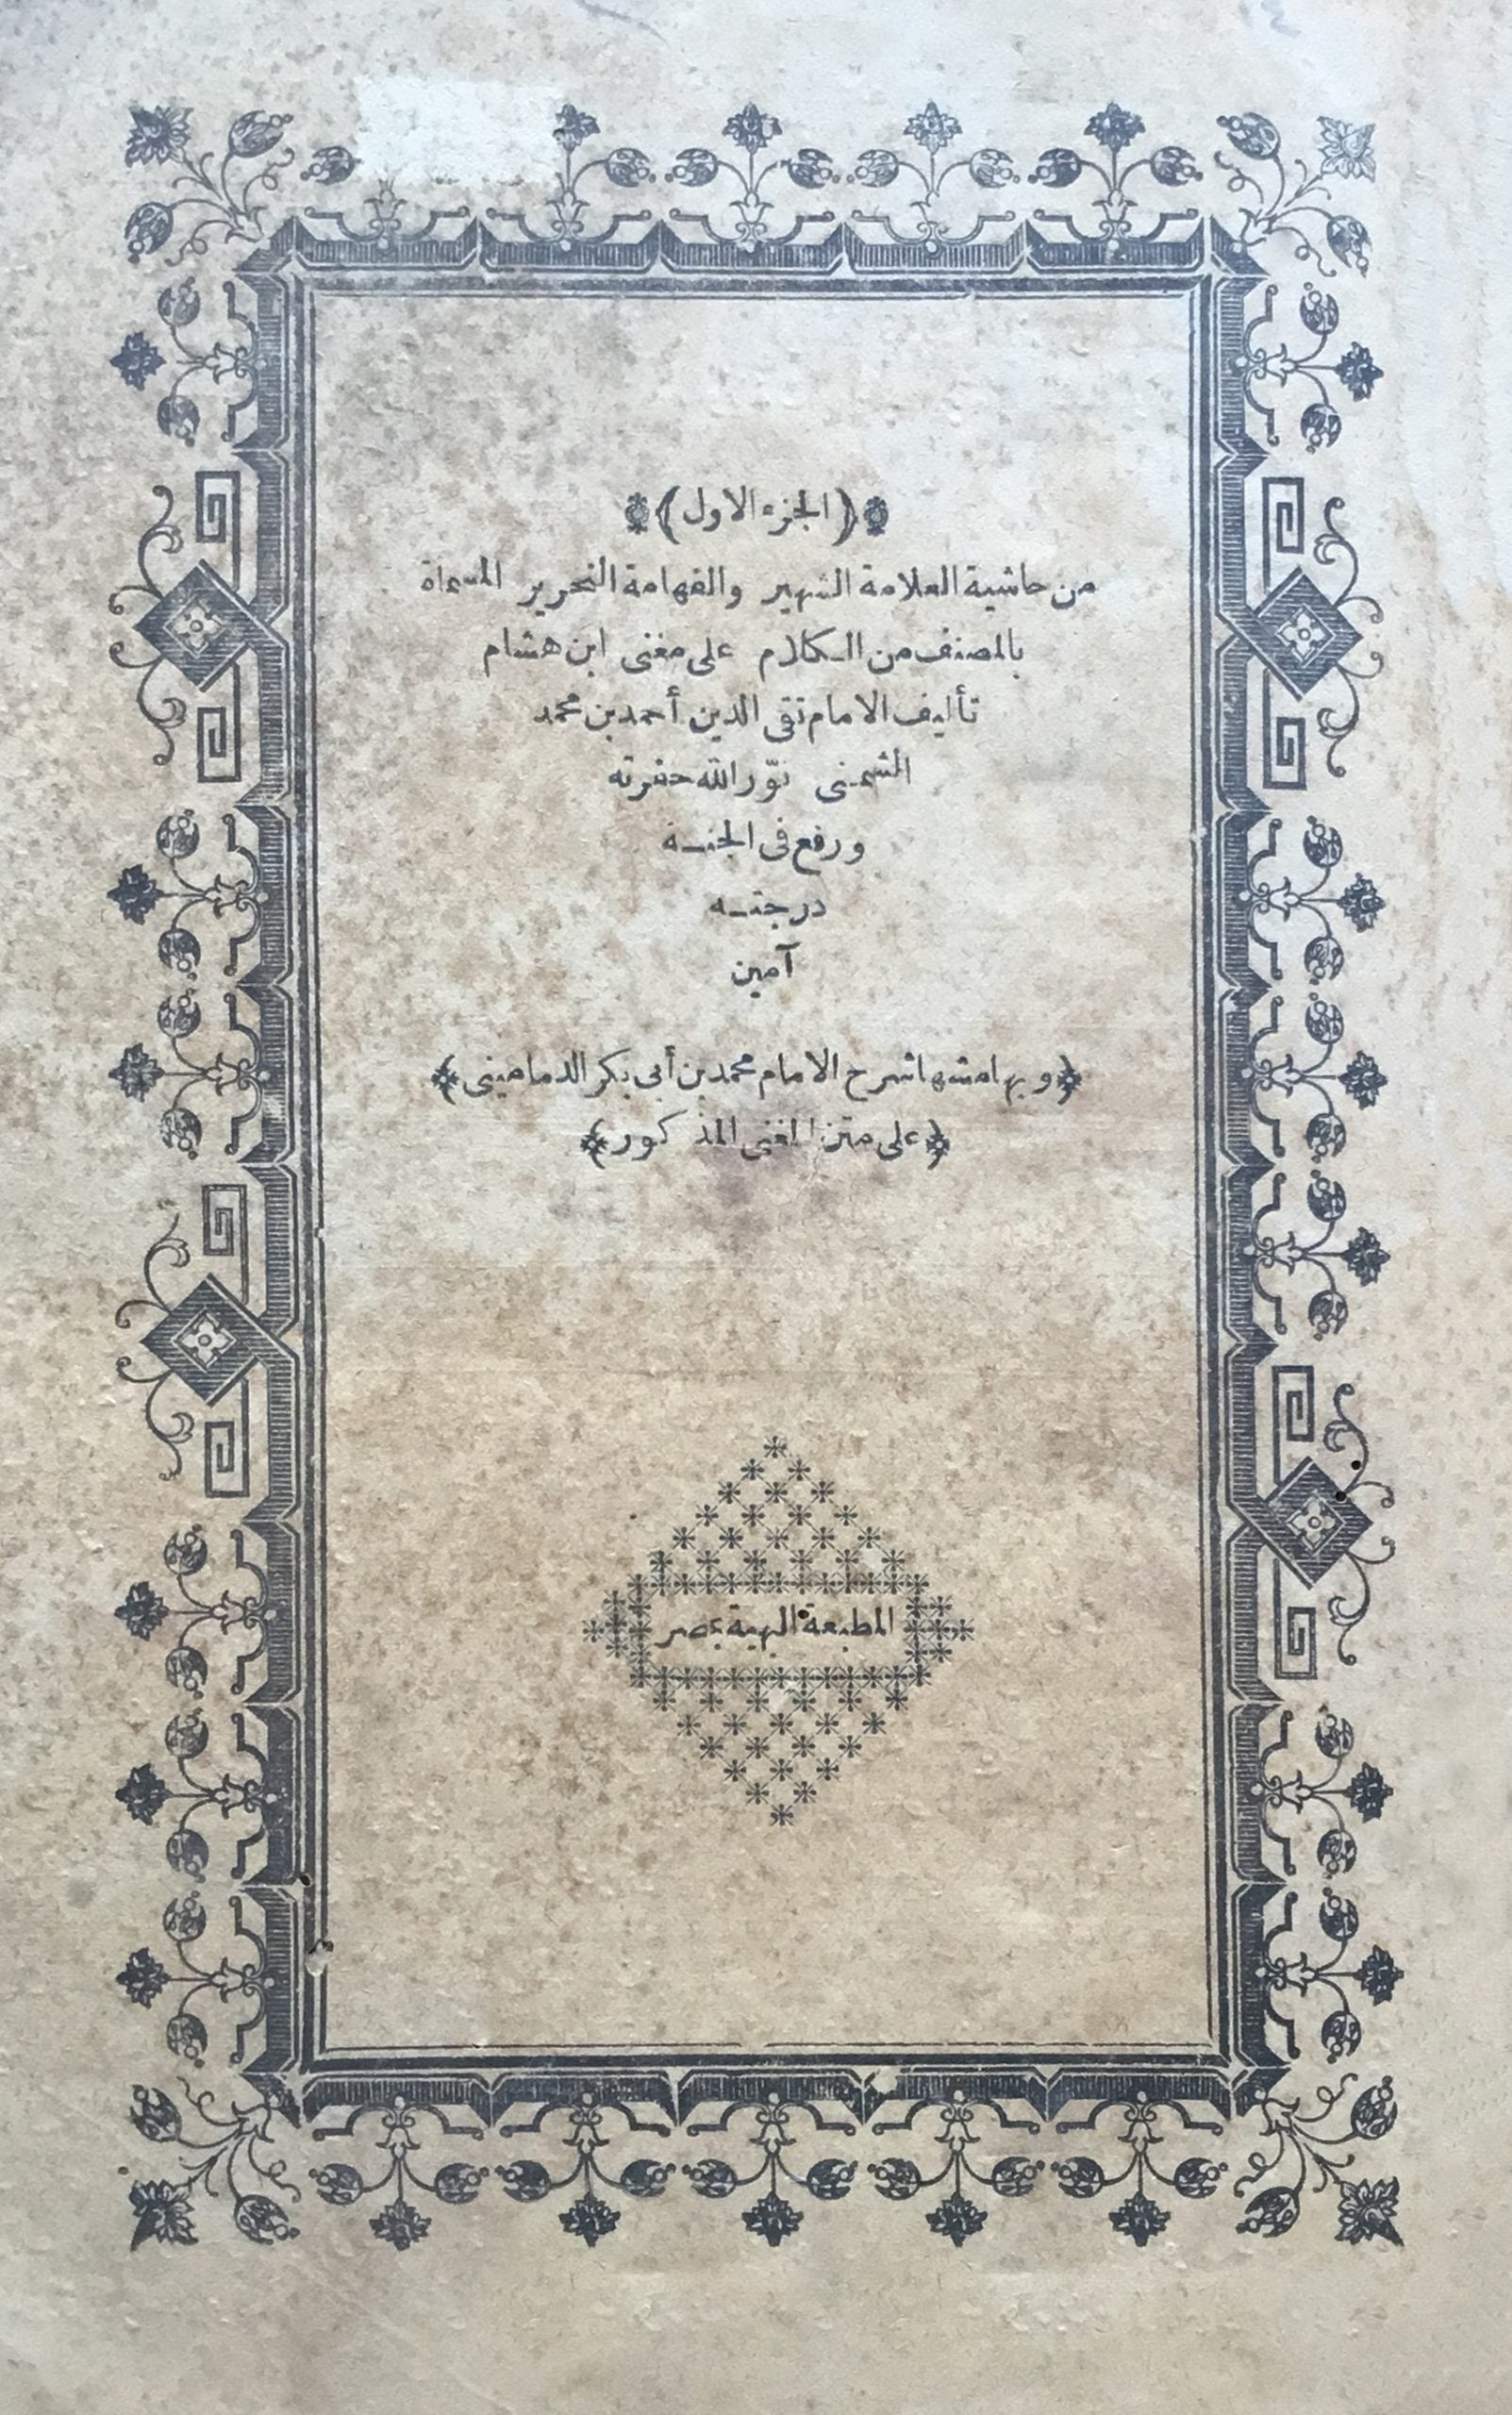 (الجزء الاول)
من حاشية العلامة الشهير والفهامة النحرير المسماة
بالمنصف من الكلام على مغنى ابن هشام
تأليف الامام تقى الدين أحمد بن محمد
الشمنى نوّر الله حفرته
ورفع فى الجنــة
درجتــه
آمين
﴿وبهامشها شرح الامام محمد بن أبى بكر الدمامينى﴾
﴿على متن المغنى المذكور﴾
المطبعة البهية بمصر